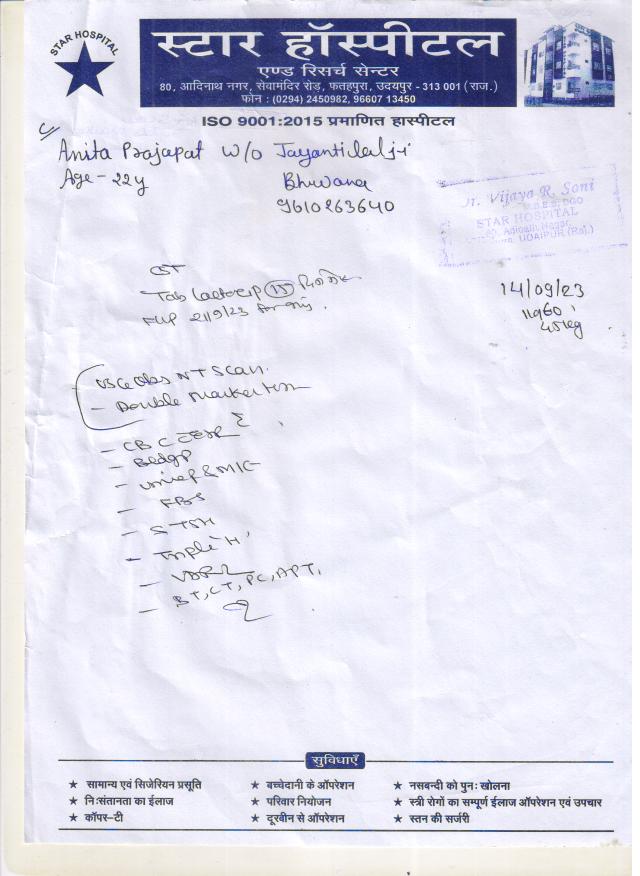 STAR HOSPITAL
स्टार हॉस्पीटल
एण्ड रिसर्च सेन्टर
80, आदिनाथ नगर, सेवामंदिर रोड़, फतहपुरा, उदयपुर - 313 001 (राज.)
फोन : (0294) 2450982, 96607 13450
ISO 9001:2015 प्रमाणित हास्पीटल
Anita Prajapat W/o Jayantilal ji
Age - 22y Bhuwana
9610263640
Dr. Vijaya R. Soni
M.B.B.S, DGO
STAR HOSPITAL
UDAIPUR (Raj.)
14/09/23
110/60
45 kg
Tab
21/9/23
USG Obs NT Scan.
- Double Marker
- CBC ESR
- Bldgp
- Urine R & MIC
- FBS
- S TSH
- Triple 'H'
- VDRL
- BT, CT, PC, APT,
सुविधाएँ
★ सामान्य एवं सिजेरियन प्रसूति ★ बच्चेदानी के ऑपरेशन ★ नसबन्दी को पुनः खोलना
★ निःसंतानता का ईलाज ★ परिवार नियोजन ★ स्त्री रोगों का सम्पूर्ण ईलाज ऑपरेशन एवं उपचार
★ कॉपर–टी ★ दूरबीन से ऑपरेशन ★ स्तन की सर्जरी